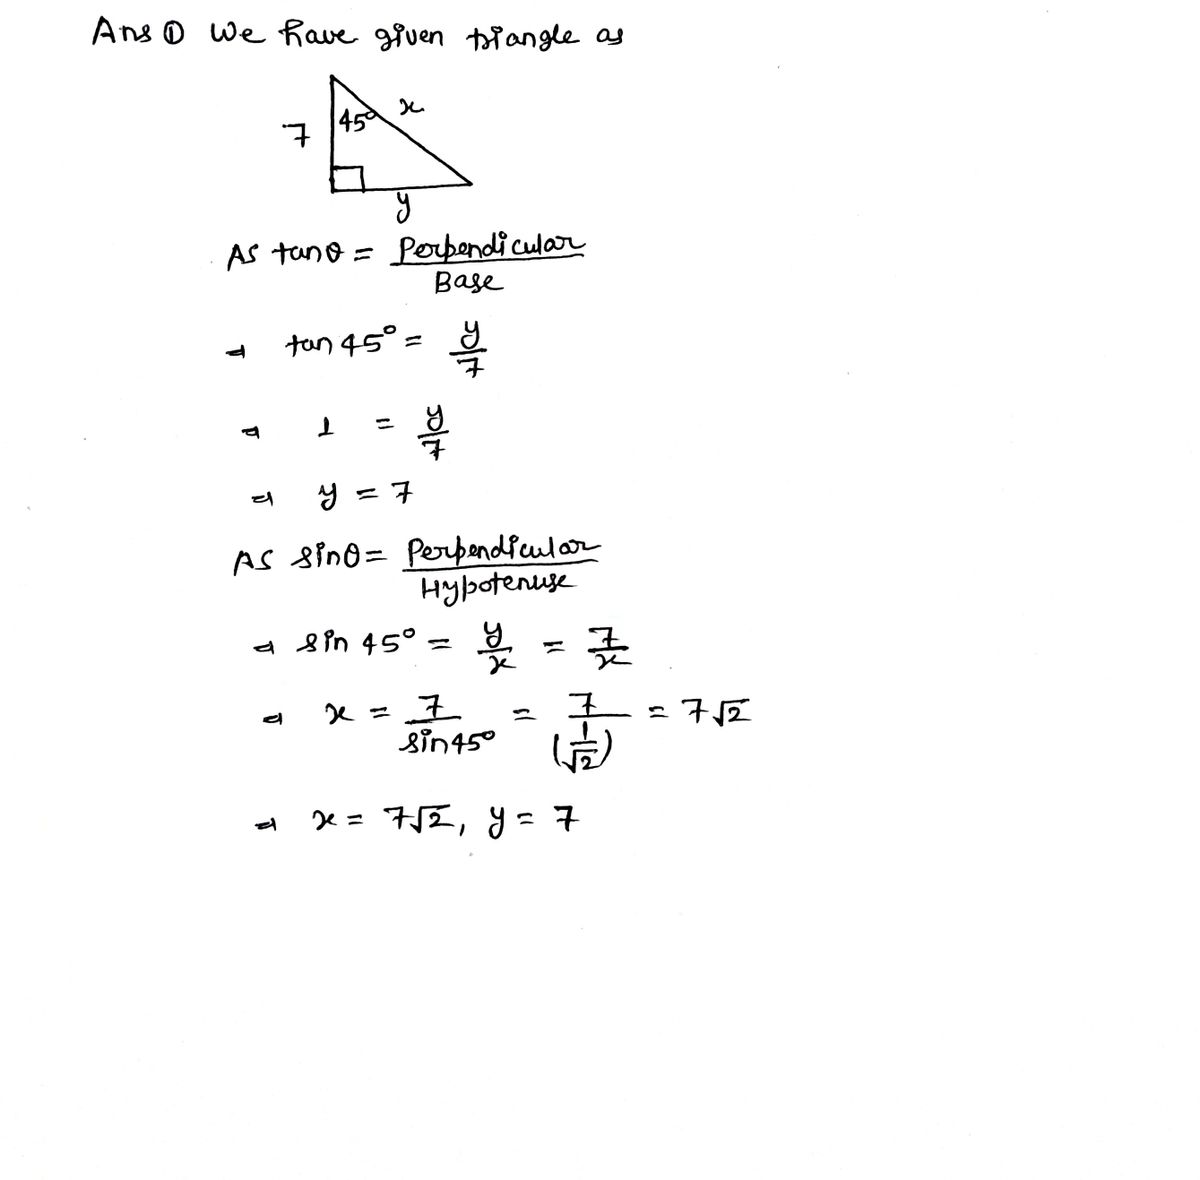 Ans ① We have given triangle as
45° x
7
y
As tanθ = Perpendicular
Base
⇒ tan 45° = y/7
⇒ 1 = y/7
⇒ y = 7
As sinθ = Perpendicular
Hypotenuse
⇒ sin 45° = y/x = 7/x
⇒ x = 7/sin45° = 7/(1/√2) = 7√2
⇒ x = 7√2, y = 7